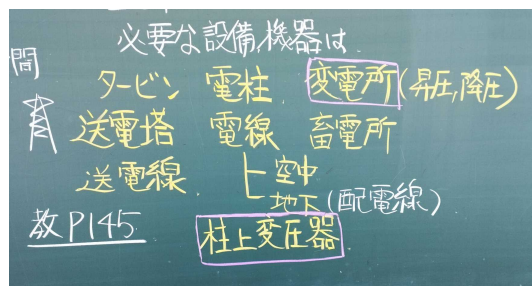 必要な設備,機器は.
間
タービン 電柱 変電所(昇圧,降圧)
送電塔 電線 畜電所
送電線 空中
地下(配電線)
教P145
柱上変圧器